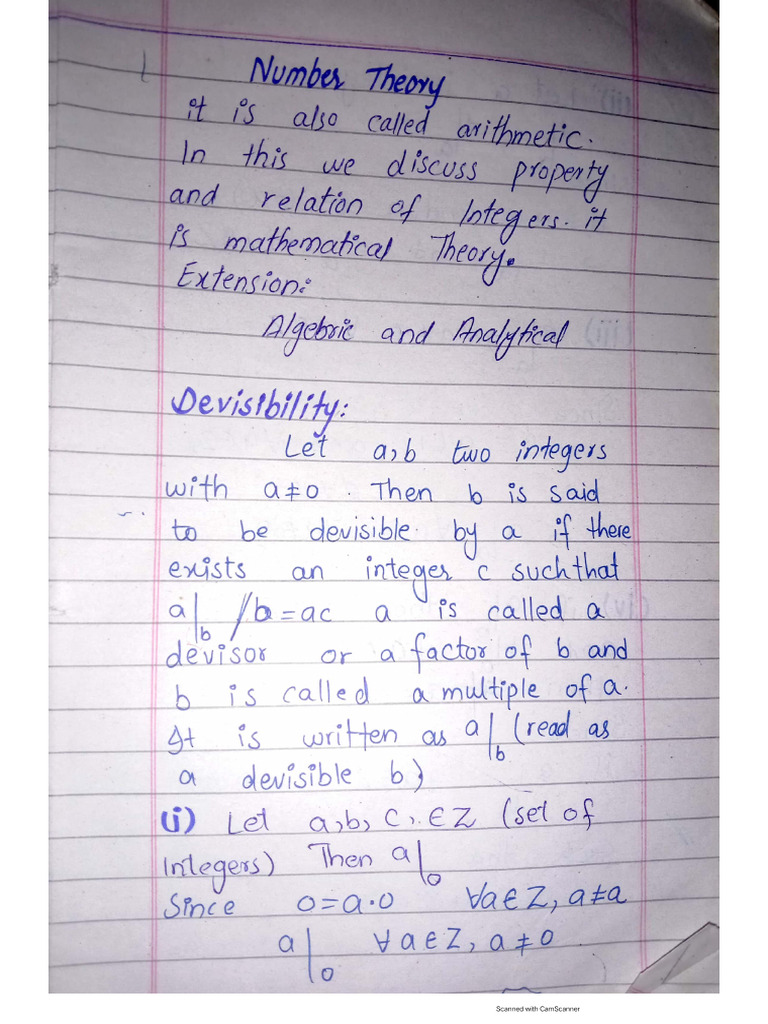 Number Theory
it is also called arithmetic.
In this we discuss property
and relation of Integers. it
is mathematical Theory.
Extension:
Algebric and Analytical
Devisibility:
Let a,b two integers
with a≠0. Then b is said
to be devisible by a if there
exists an integer c such that
a|b /b=ac a is called a
devisor or a factor of b and
b is called a multiple of a.
It is written as a|b (read as
a devisible b)
(i) Let a,b,c,∈Z (set of
Integers) Then a|0
Since 0=a·0 ∀a∈Z, a≠a
a|0 ∀a∈Z, a≠0
Scanned with CamScanner